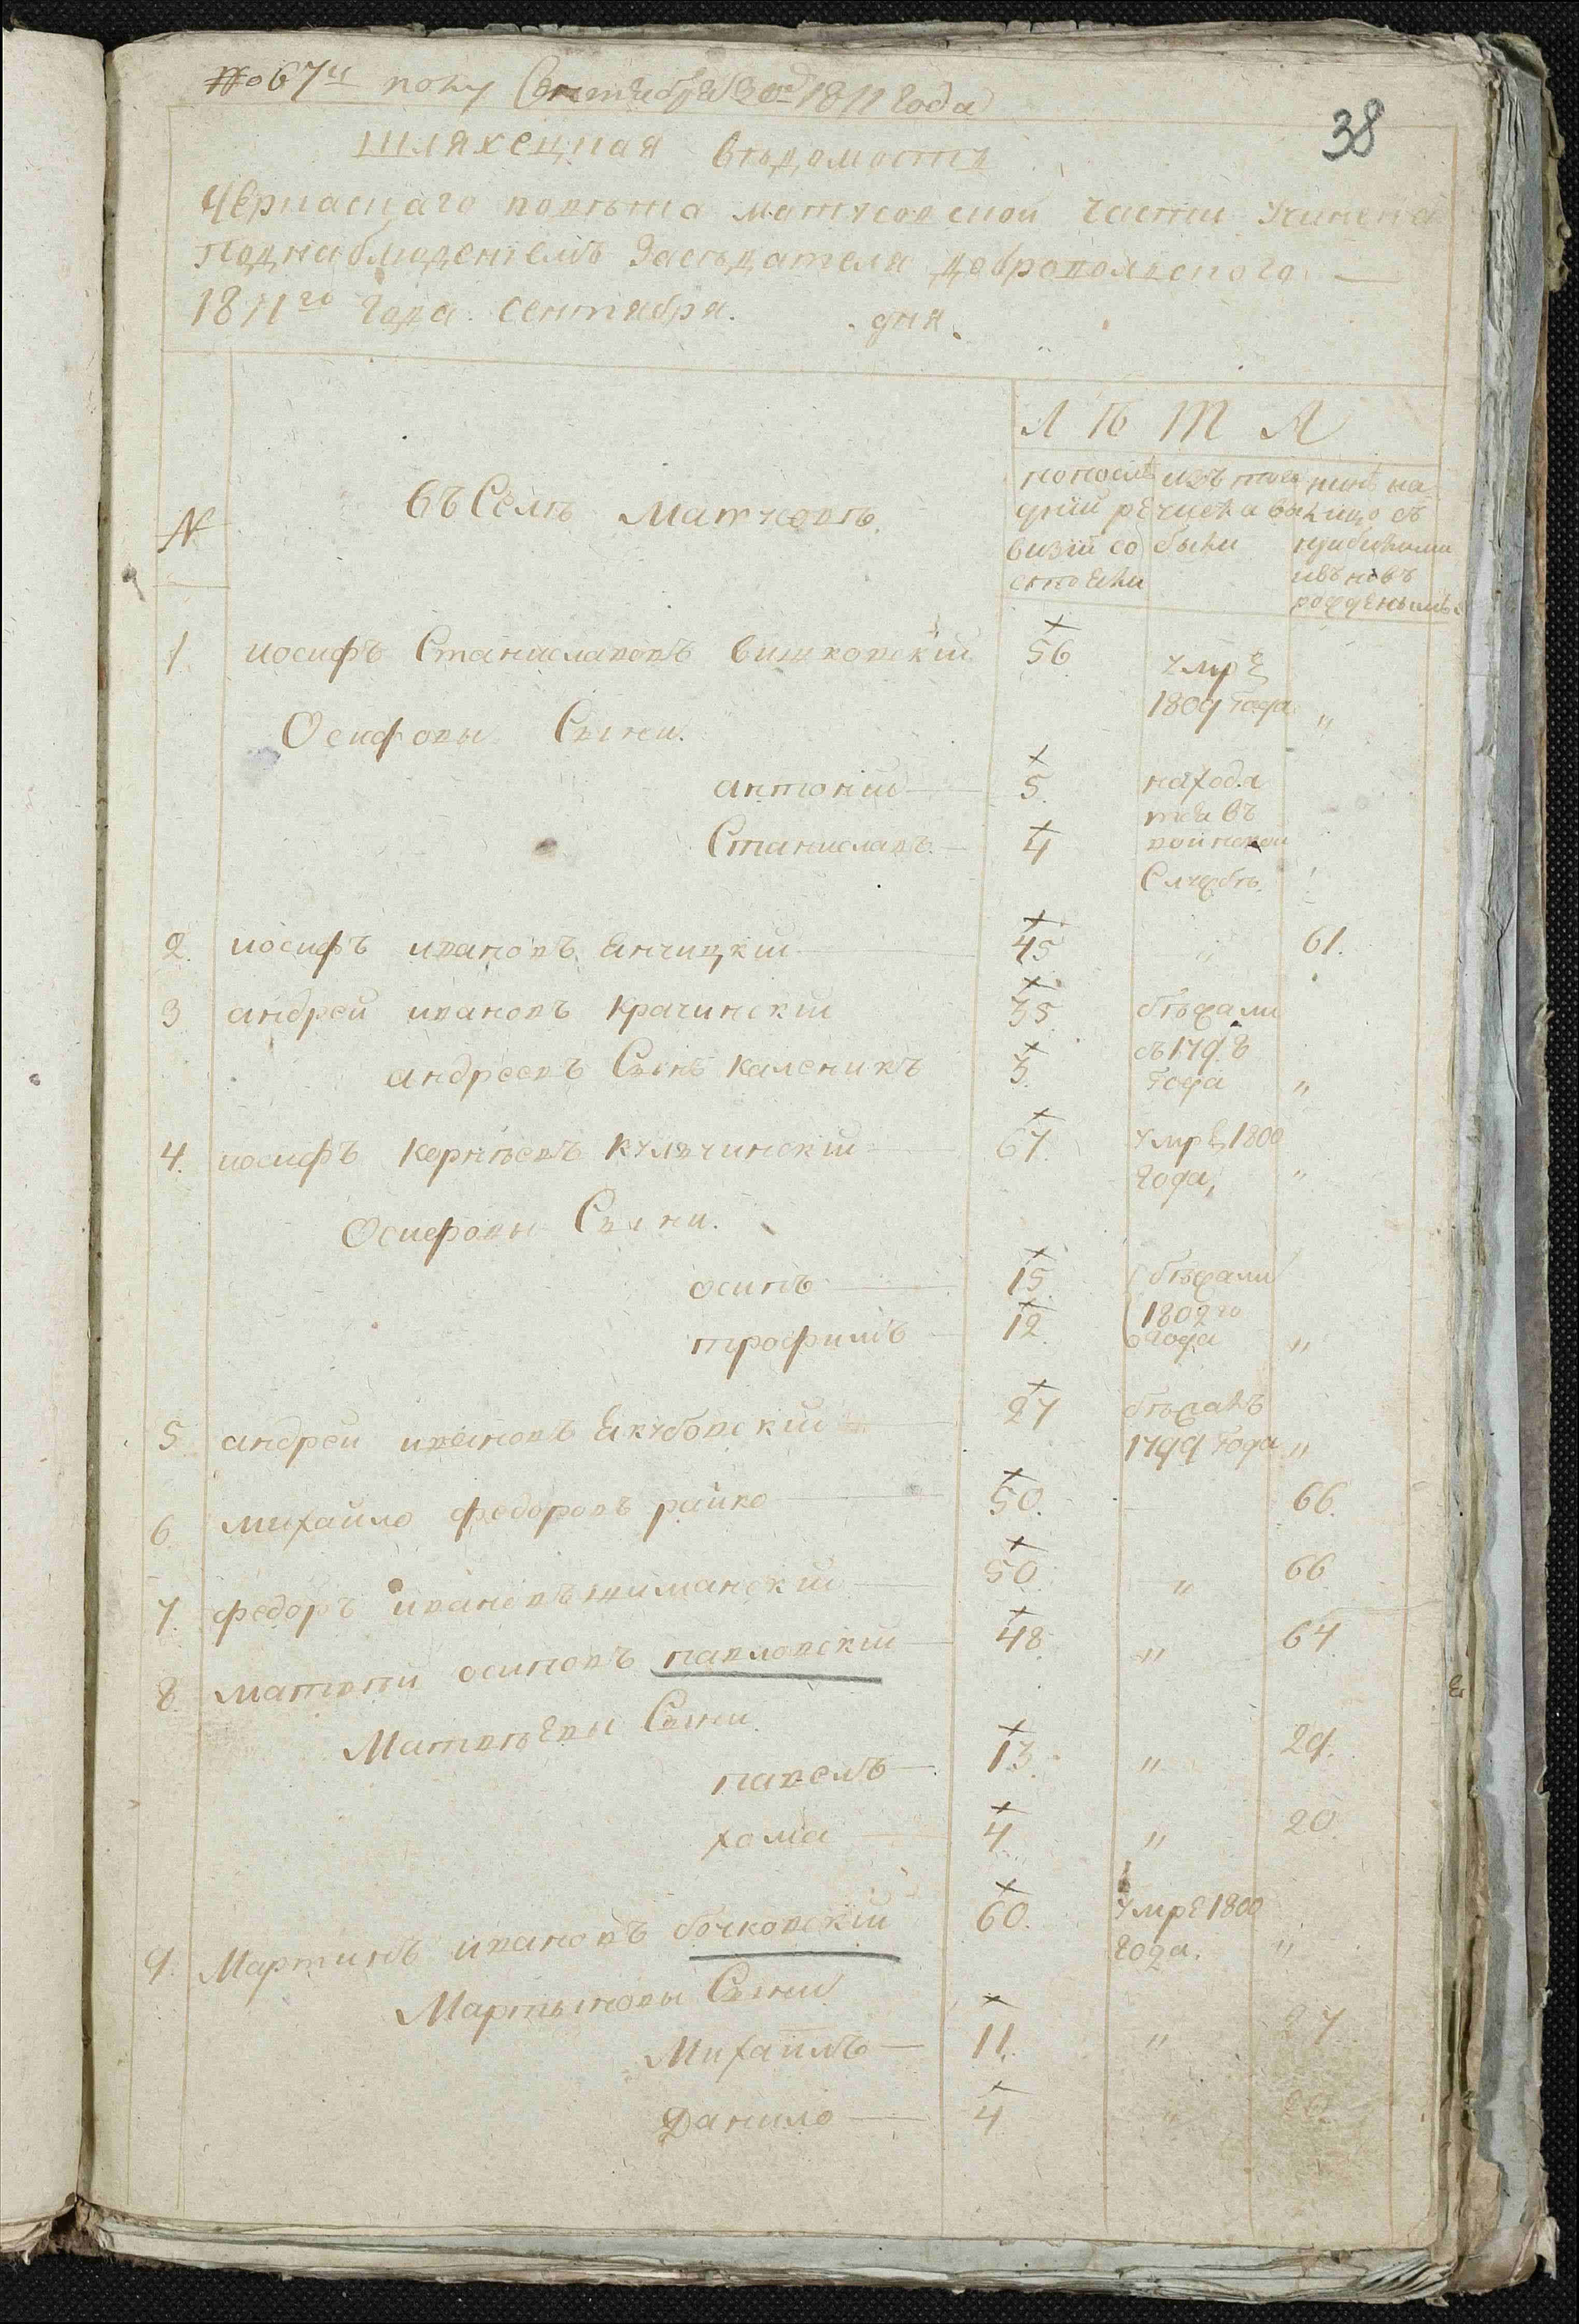 № 67й
Сентября 30го 1811 года
38
шляхецкая ведомость
Черкаскаго повѣта матусовской части учинена
Поднаблюденіемъ Засѣдателя добровольского
1811го Года сентября. дня.
Л Ѣ Т А
N
Въ Селѣ Матусовѣ.
попослѣ дній ревизіи со стояли
изъ того числа вы были
нинѣ на лицо съ прибилыми ивъновъ рожденымы
1 иосифъ Станиславовъ вишковскій 56 умре
1809 Года "
Осифовы Сыни.
антоній 5. находя
тся въ
Станиславъ 4 воинской
Службѣ.
2. иосифъ ивановъ Енчицкій 45 " 61.
3 андрей ивановъ крачинскій 35. бѣжали
съ 1798
андреевъ Сынъ каленикъ 3. Года "
4. иосифъ корнѣевъ кулвчинскій 67. умре 1800
Года, "
Осифовы Сыни.
осипъ 15 бѣжали
1802го
трофимъ 12 года "
5 андрей ивановъ Якубовскій 27 бѣжалъ
1799 Года "
6. михайло федоровъ райко 50. 66.
7. федоръ ивановъ шиманскій 50 " 66
8. матвѣй осиповъ павловскій 48 " 64
Матвѣевы Сыни.
павелъ 13. " 29.
хома 4. " 20.
9. Мартинъ ивановъ бочковскій 60. умре 1800
Года. "
Мартыновы Сыни
Михайлъ 11. " 27
Данило 4 " 20